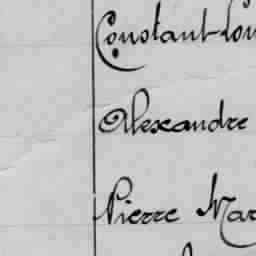 Constant-Lou
Alexandre
Pierre Mar